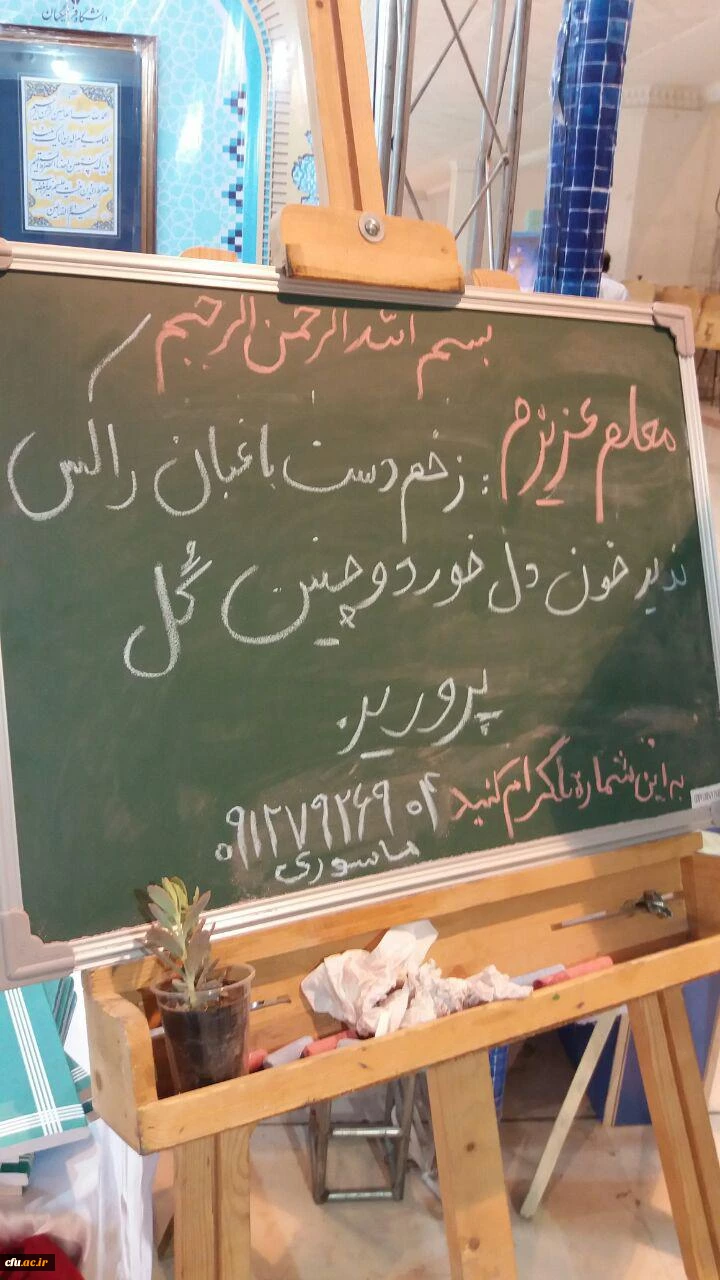 دانشگاه فرهنگیان
بسم الله الرحمن الرحیم
معلم عزیزم: زخم دست باغبان را کس
ندید خون دل خورد و چنین گُل
پرورید
به این شماره تلگرام کنید ۰۹۱۲۷۹۲۶۹۰۴
ماسوری
cfu.ac.ir